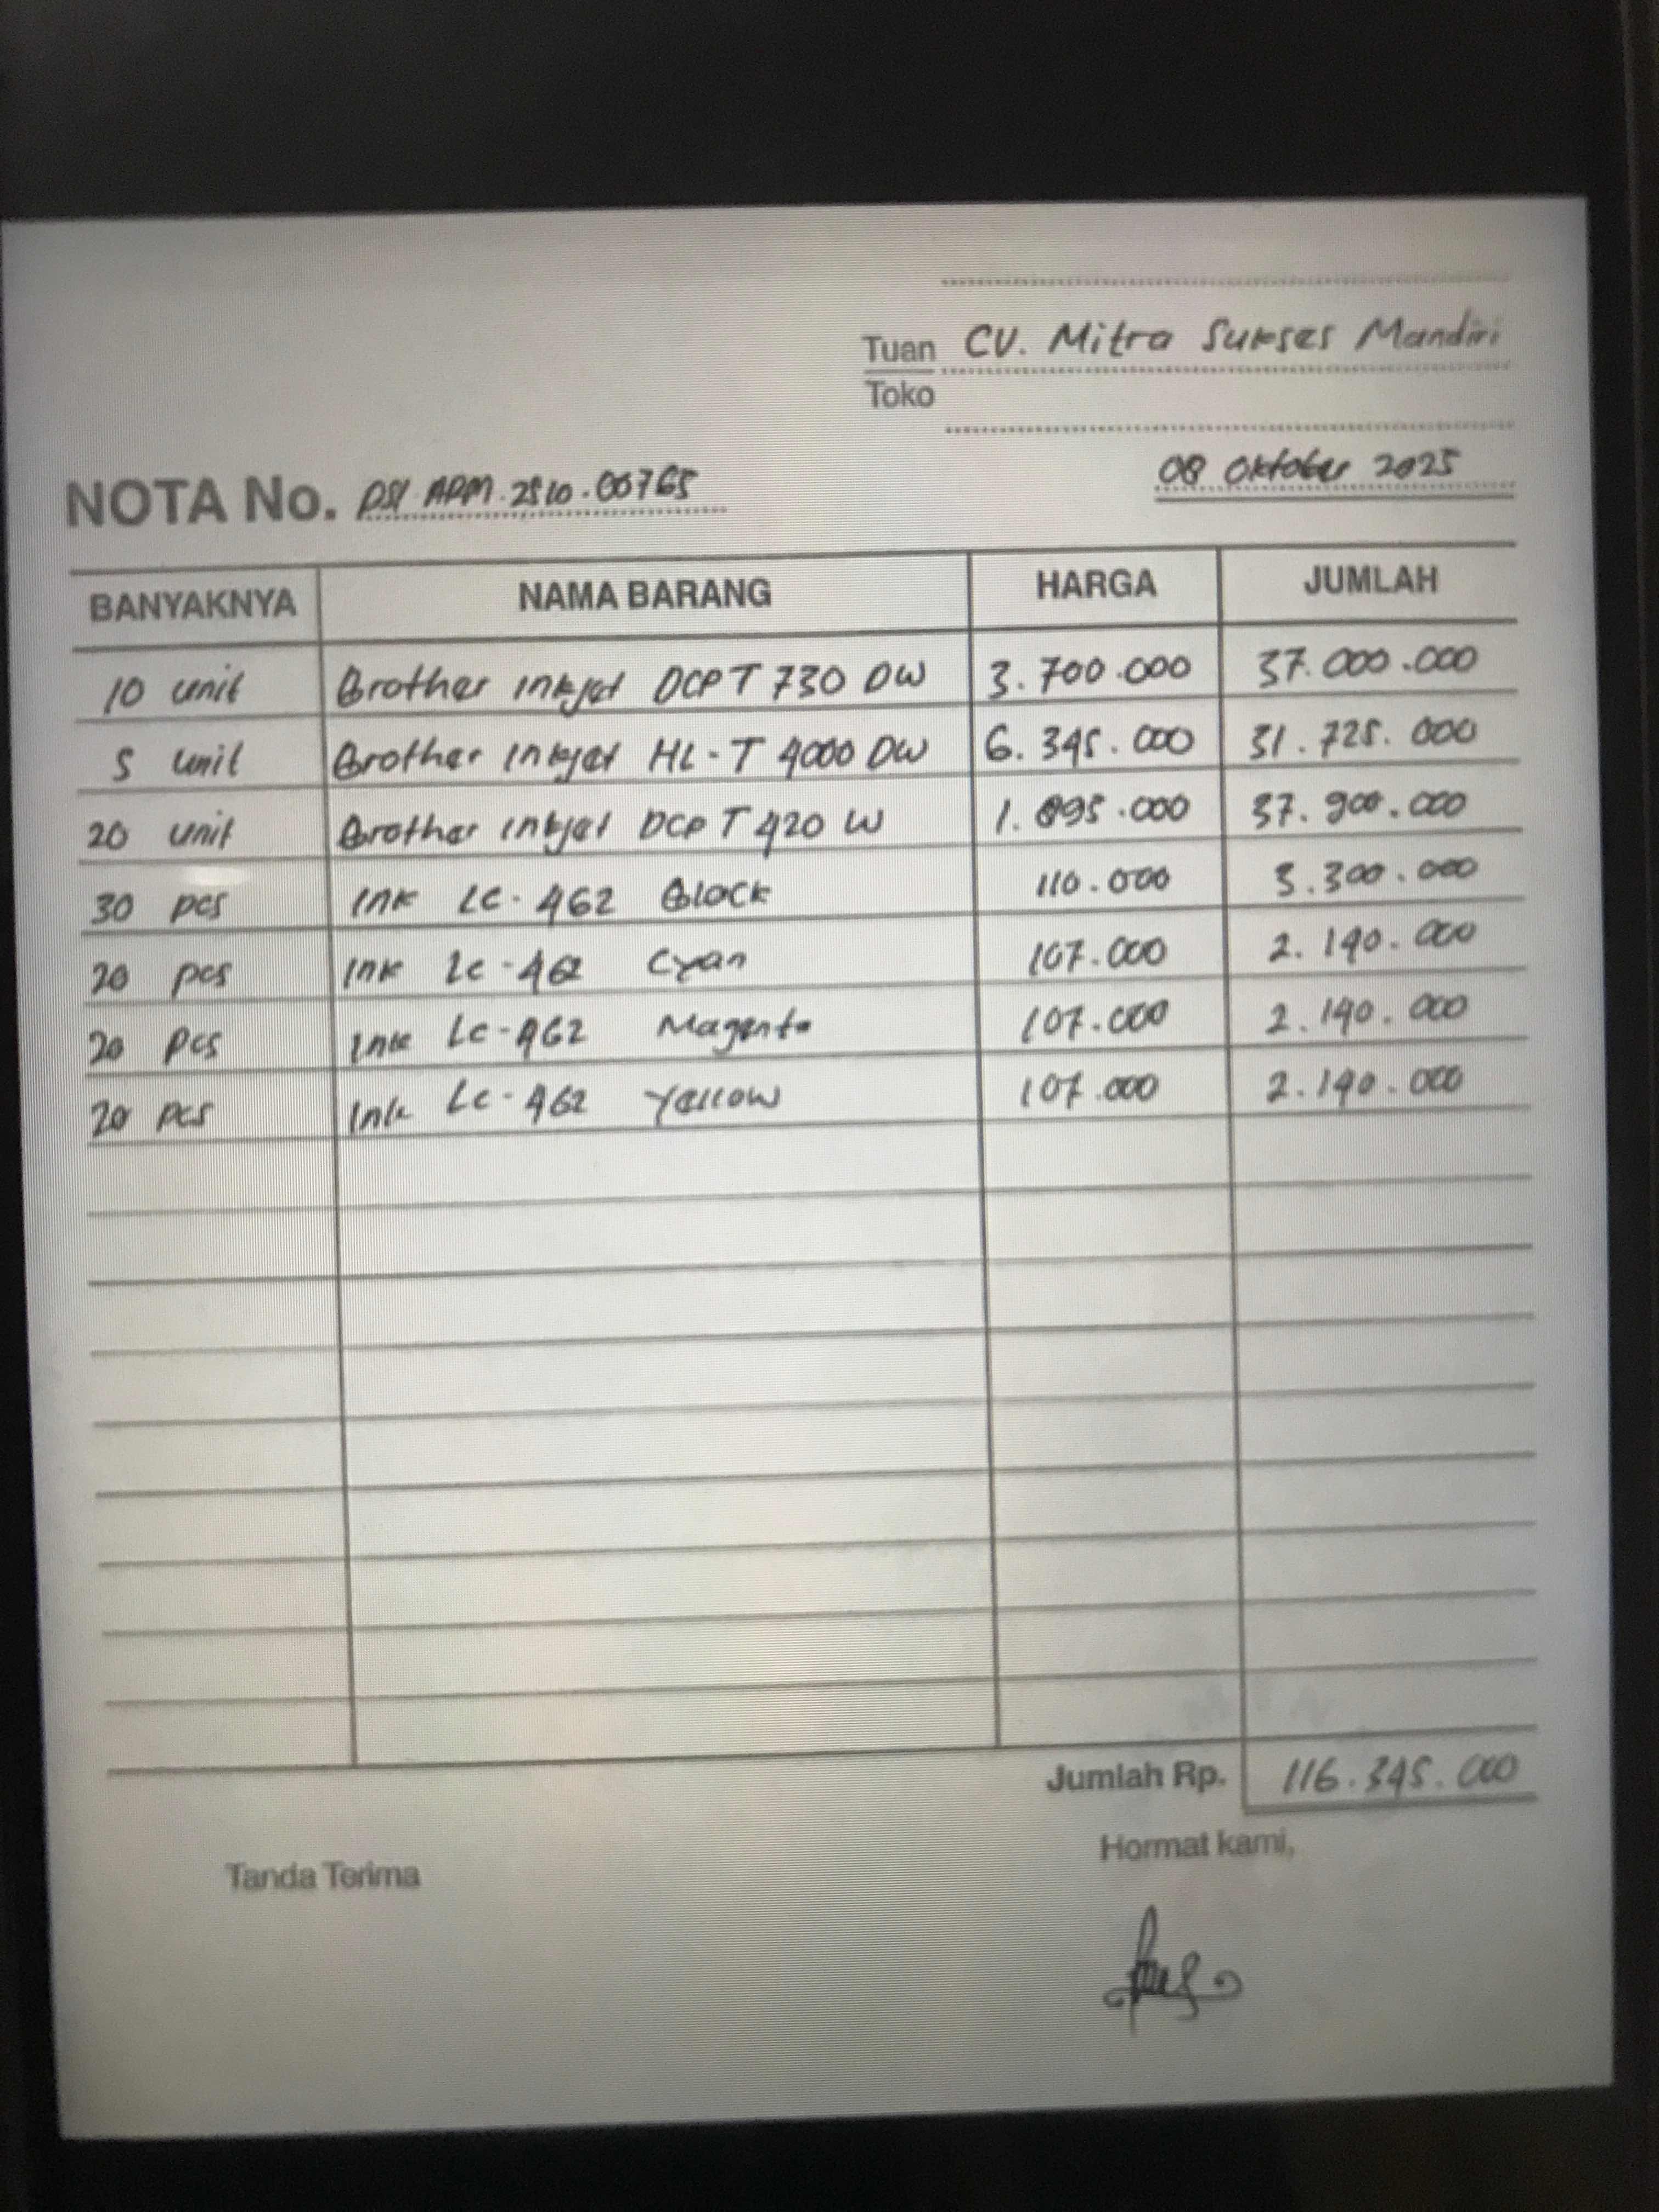 Tuan CV. Mitra Sukses Mandiri
Toko
NOTA No. PSI.ADM.2510.00765
08 Oktober 2025
BANYAKNYA NAMA BARANG HARGA JUMLAH
10 unit Brother Inkjet DCP T 730 DW 3.700.000 37.000.000
5 unit Brother Inkjet HL-T 4000 DW 6.345.000 31.725.000
20 unit Brother Inkjet DCP T 420 W 1.895.000 37.900.000
30 pcs Ink LC-462 Black 110.000 3.300.000
20 pcs Ink LC-462 Cyan 107.000 2.140.000
20 Pcs Ink LC-462 Magenta 107.000 2.140.000
20 pcs Ink LC-462 Yellow 107.000 2.140.000
Jumlah Rp. 116.345.000
Tanda Terima
Hormat kami,